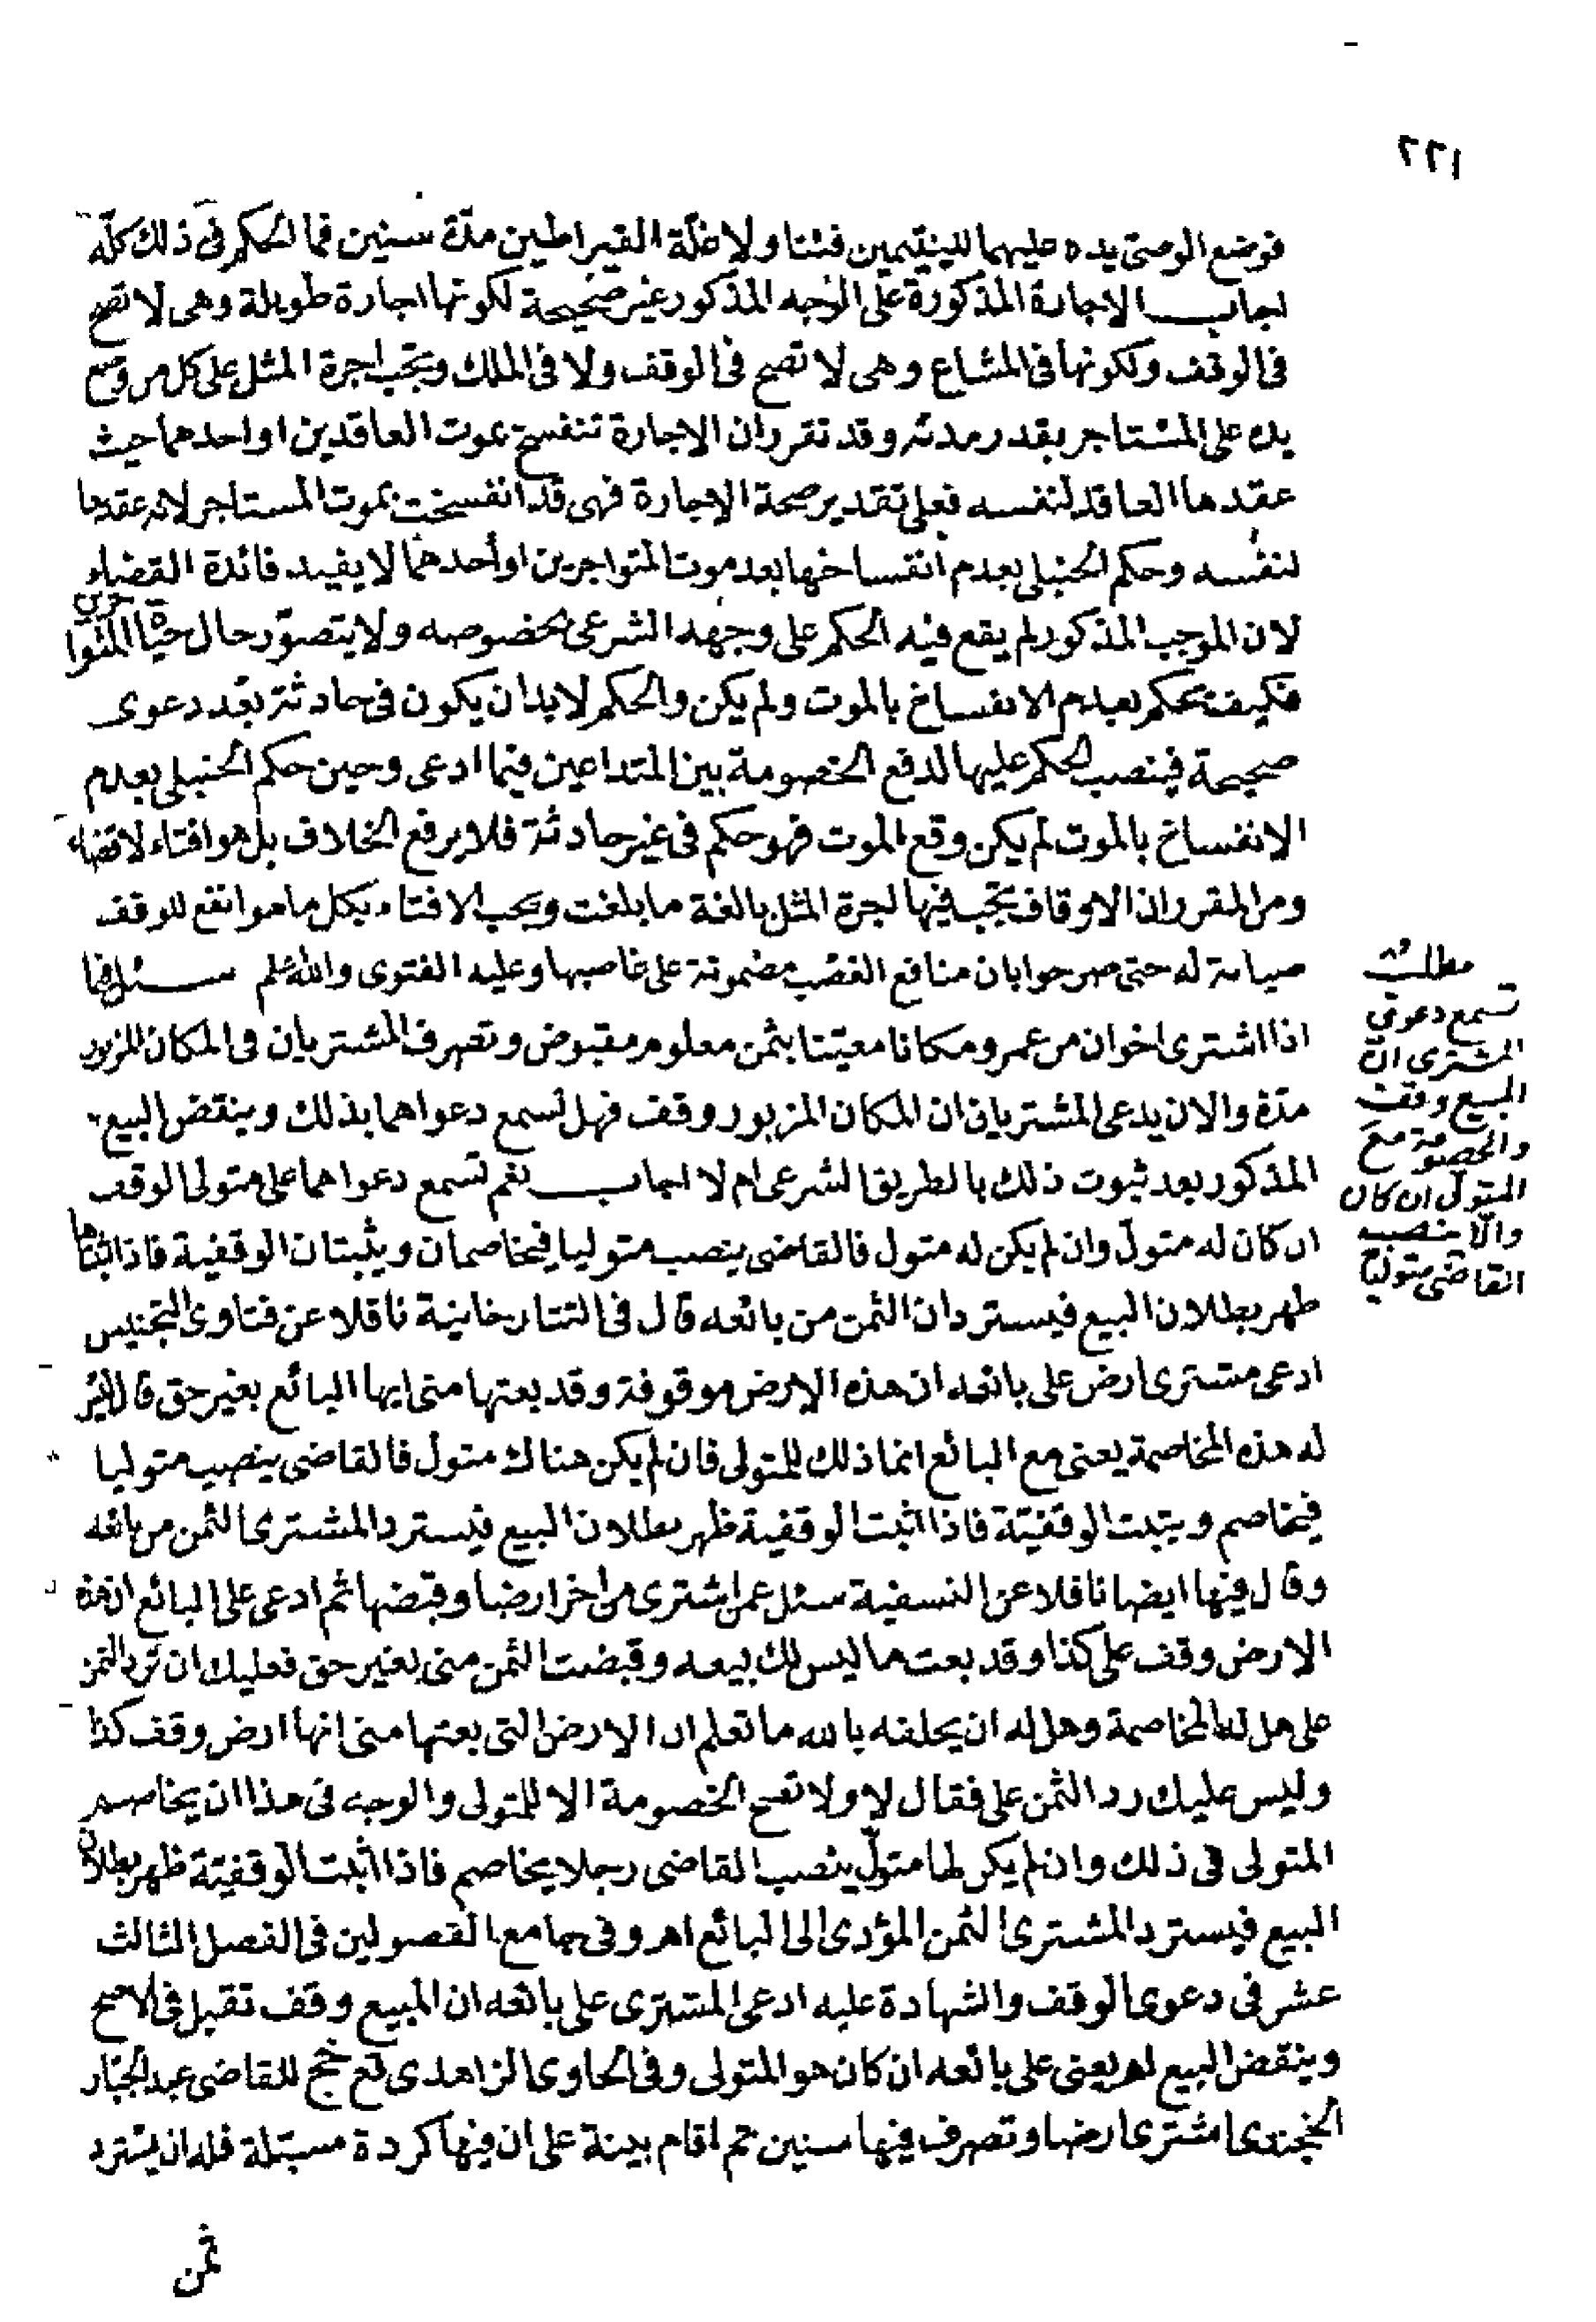 ٢٢١
فوضع الوصى يده عليهما لليتيمين فتناولا غلة القيراطين مدّة سنين فما الحكم فى ذلك كلّه
اجاب الاجارة المذكورة على الوجه المذكور غير صحيحة لكونها اجارة طويلة وهى لا تصح
فى الوقف ولكونها فى المشاع وهى لا تصح فى الوقف ولا فى الملك وتجب اجرة المثل على كل من وضع
يده على المستاجر بقدر مدته وقد تقرر ان الاجارة تنفسخ بموت العاقدين او احدهما حيث
عقدها العاقد لنفسه فعلى تقدير صحة الاجارة فهى قد انفسخت بموت المستاجر لانه عقدها
لنفسه وحكم الحنبلى بعدم انفساخها بعد موت المتواجرين او أحدهما لا يفيد فائدة القضاء
لان الموجب المذكور لم يقع فيه الحكم على وجهه الشرعى بخصوصه ولا يتصوّر حال حياة المتواجرين
فكيف يحكم بعدم الانفساخ بالموت ولم يكن والحكم لا بد ان يكون فى حادثة بعد دعوى
صحيحة فينصب الحكم عليها لدفع الخصومة بين المتداعيين فيما ادعى وحين حكم الحنبلى بعدم
الانفساخ بالموت لم يكن وقع الموت فهو حكم فى غير حادثة فلا يرفع الخلاف بل هو افتاء لا قضاء
ومن المقرر ان الاوقاف تجب فيها اجرة المثل بالغة ما بلغت ويجب الافتاء بكل ما هو انفع للوقف
صيانة له حتى صرحوا بان منافع الغصب مضمونة على غاصبها وعليه الفتوى والله اعلم سئل فيما
اذا اشترى اخوان من عمرو مكانا معيّنا بثمن معلوم مقبوض وتصرف المشتريان فى المكان المزبور
مدّة والان يدعى المشتريان ان المكان المزبور وقف فهل تسمع دعواهما بذلك وينقض البيع
المذكور بعد ثبوت ذلك بالطريق الشرعى ام لا اجاب نعم تسمع دعواهما على متولى الوقف
ان كان له متول وان لم يكن له متول فالقاضى ينصب متوليا فيخاصمان ويثبتان الوقفية فاذا اثبتاها
ظهر بطلان البيع فيستردان الثمن من بائعه قال فى التتارخانية ناقلا عن فتاوى التجنيس
ادعى مشترى ارض على بائعه ان هذه الارض موقوفة وقد بعتها منى ايها البائع بغير حق قال ليس
له هذه المخاصمة يعنى مع البائع انما ذلك للمتولى فان لم يكن هناك متول فالقاضى ينصب متوليا
فيخاصم ويثبت الوقفيّة فاذا اثبت الوقفية ظهر بطلان البيع فيسترد المشترى الثمن من بائعه
وقال فيها ايضا ناقلا عن النسفية سئل عمن اشترى من اخر ارضا وقبضها ثم ادعى على البائع ان هذه
الارض وقف على كذا وقد بعت ما ليس لك بيعه وقبضت الثمن منى بغير حق فعليك ان ترد الثمن
على هل له المخاصمة وهل له ان يحلفه بالله ما تعلم ان الارض التى بعتها منى انها ارض وقف كذا
وليس عليك رد الثمن على فقال لا ولا تصح الخصومة الا للمتولى والوجه فى هذا ان يخاصم
المتولى فى ذلك وان لم يكن لها متولّ ينصب القاضى رجلا يخاصم فاذا اثبت الوقفيّة ظهر بطلان
البيع فيسترد المشترى الثمن المؤدى الى البائع اهـ وفى جامع الفصولين فى الفصل الثالث
عشر فى دعوى الوقف والشهادة عليه ادعى المشترى على بائعه ان المبيع وقف تقبل فى الاصح
وينقض البيع اهـ يعنى على بائعه ان كان هو المتولى وفى الحاوى الزاهدى قع خج للقاضى عبد الجبّار
الخجندى اشترى ارضا وتصرف فيها سنين ثم اقام بينة على ان فيها كردة مسبّلة فله ان يسترد
ثمن
مطلب
تسمع دعوى
المشترى ان
المبيع وقف
والخصومة مع
المتولّى ان كان
والّا ينصب
القاضى متوليا